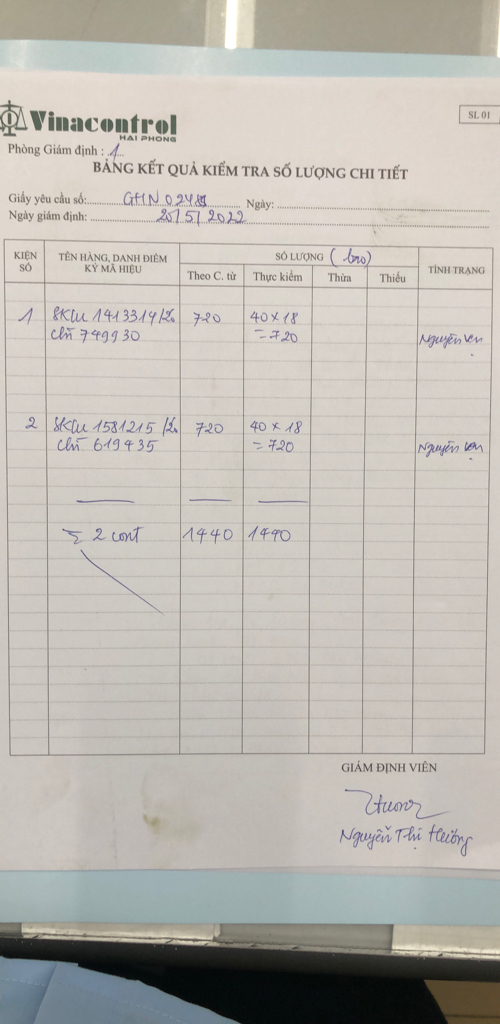 Vinacontrol
HAI PHONG
SL 01
Phòng Giám định : 1
BẢNG KẾT QUẢ KIỂM TRA SỐ LƯỢNG CHI TIẾT
Giấy yêu cầu số: Ngày:
Ngày giám định: 25/5/2022
KIỆN SỐ TÊN HÀNG, DANH ĐIỂM KÝ MÃ HIỆU SỐ LƯỢNG (bao) TÌNH TRẠNG
Theo C. từ Thực kiểm Thừa Thiếu
1 SKLU 1413314/20 720 40 x 18
chì 749930 = 720 Nguyên vẹn
2 SKLU 1581215 /20 720 40 x 18
chì 619435 = 720 Nguyên vẹn
Σ 2 cont 1440 1440
GIÁM ĐỊNH VIÊN
Nguyễn Thị Hường